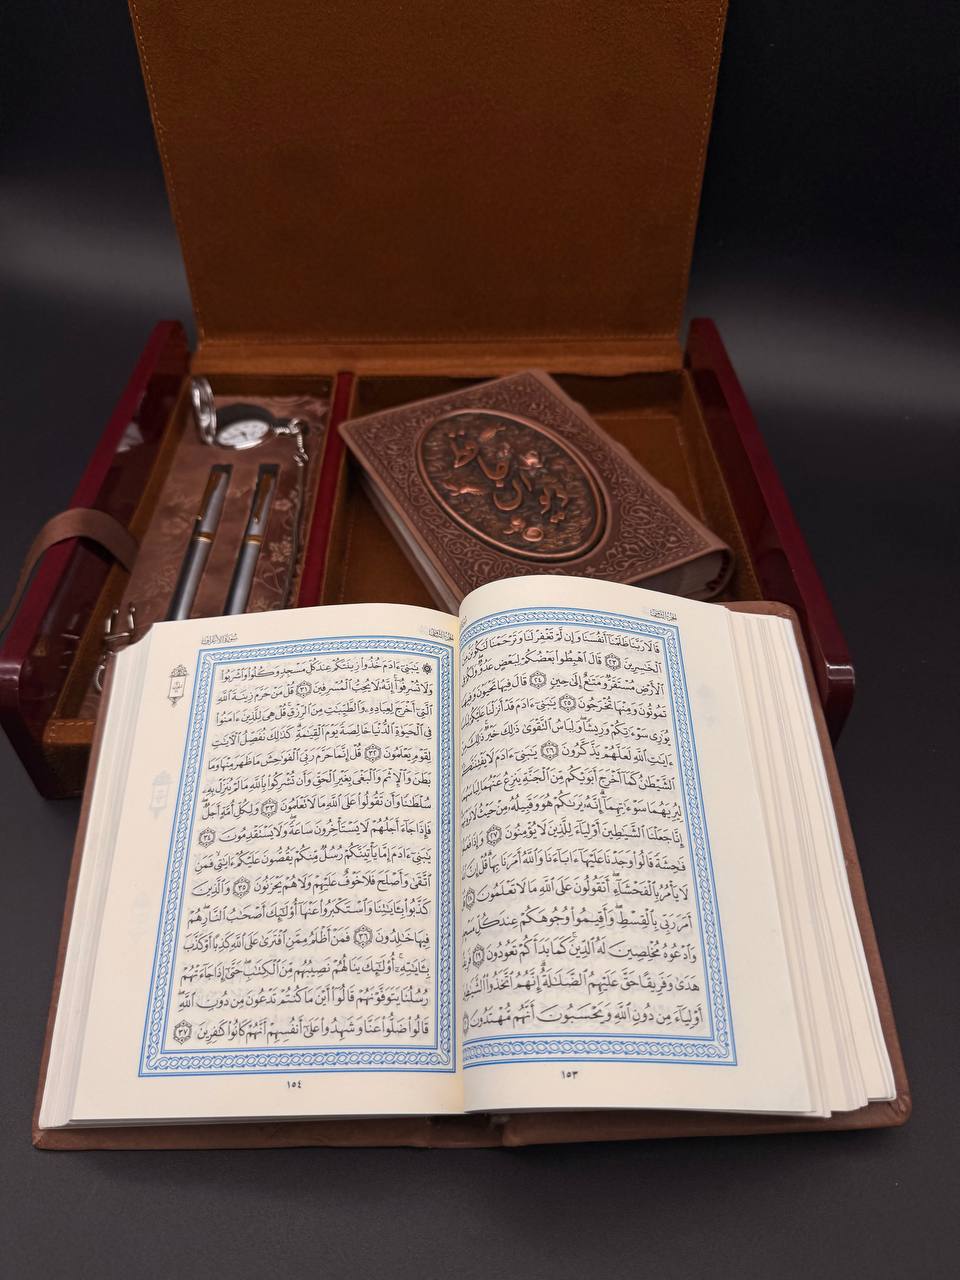 ديوان
حافظ
الجزء الثامن
قَالَا رَبَّنَا ظَلَمْنَا أَنفُسَنَا وَإِن لَّمْ تَغْفِرْ لَنَا وَتَرْحَمْنَا لَنَكُونَنَّ مِنَ
ٱلْخَٰسِرِينَ ٢٣ قَالَ ٱهْبِطُوا۟ بَعْضُكُمْ لِبَعْضٍ عَدُوٌّ وَلَكُمْ
ٱلْأَرْضِ مُسْتَقَرٌّ وَمَتَٰعٌ إِلَىٰ حِينٍ ٢٤ قَالَ فِيهَا تَحْيَوْنَ وَفِيهَا
تَمُوتُونَ وَمِنْهَا تُخْرَجُونَ ٢٥ يَٰبَنِىٓ ءَادَمَ قَدْ أَنزَلْنَا عَلَيْكُمْ
يُوَٰرِى سَوْءَٰتِكُمْ وَرِيشًا وَلِبَاسُ ٱلتَّقْوَىٰ ذَٰلِكَ خَيْرٌ ذَٰلِكَ مِنْ
ءَايَٰتِ ٱللَّهِ لَعَلَّهُمْ يَذَّكَّرُونَ ٢٦ يَٰبَنِىٓ ءَادَمَ لَا يَفْتِنَنَّكُمُ
ٱلشَّيْطَٰنُ كَمَآ أَخْرَجَ أَبَوَيْكُم مِّنَ ٱلْجَنَّةِ يَنزِعُ عَنْهُمَا لِبَاسَهُمَا
لِيُرِيَهُمَا سَوْءَٰتِهِمَآ إِنَّهُۥ يَرَىٰكُمْ هُوَ وَقَبِيلُهُۥ مِنْ حَيْثُ لَا
إِنَّا جَعَلْنَا ٱلشَّيَٰطِينَ أَوْلِيَآءَ لِلَّذِينَ لَا يُؤْمِنُونَ ٢٧ وَإِذَا
فَٰحِشَةً قَالُوا۟ وَجَدْنَا عَلَيْهَآ ءَابَآءَنَا وَٱللَّهُ أَمَرَنَا بِهَا قُلْ إِنَّ
لَا يَأْمُرُ بِٱلْفَحْشَآءِ أَتَقُولُونَ عَلَى ٱللَّهِ مَا لَا تَعْلَمُونَ
أَمَرَ رَبِّى بِٱلْقِسْطِ وَأَقِيمُوا۟ وُجُوهَكُمْ عِندَ كُلِّ
وَٱدْعُوهُ مُخْلِصِينَ لَهُ ٱلدِّينَ كَمَا بَدَأَكُمْ تَعُودُونَ ٢٩
هَدَىٰ وَفَرِيقًا حَقَّ عَلَيْهِمُ ٱلضَّلَٰلَةُ إِنَّهُمُ ٱتَّخَذُوا۟
أَوْلِيَآءَ مِن دُونِ ٱللَّهِ وَيَحْسَبُونَ أَنَّهُم مُّهْتَدُونَ
١٥٣
الجزء الثامن
سورة الأعراف
يَٰبَنِىٓ ءَادَمَ خُذُوا۟ زِينَتَكُمْ عِندَ كُلِّ مَسْجِدٍ وَكُلُوا۟ وَٱشْرَبُوا۟
وَلَا تُسْرِفُوٓا۟ إِنَّهُۥ لَا يُحِبُّ ٱلْمُسْرِفِينَ ٣١ قُلْ مَنْ حَرَّمَ زِينَةَ ٱللَّهِ
ٱلَّتِىٓ أَخْرَجَ لِعِبَادِهِۦ وَٱلطَّيِّبَٰتِ مِنَ ٱلرِّزْقِ قُلْ هِىَ لِلَّذِينَ ءَامَنُوا۟
فِى ٱلْحَيَوٰةِ ٱلدُّنْيَا خَالِصَةً يَوْمَ ٱلْقِيَٰمَةِ كَذَٰلِكَ نُفَصِّلُ ٱلْءَايَٰتِ
لِقَوْمٍ يَعْلَمُونَ ٣٢ قُلْ إِنَّمَا حَرَّمَ رَبِّىَ ٱلْفَوَٰحِشَ مَا ظَهَرَ مِنْهَا وَمَا
بَطَنَ وَٱلْإِثْمَ وَٱلْبَغْىَ بِغَيْرِ ٱلْحَقِّ وَأَن تُشْرِكُوا۟ بِٱللَّهِ مَا لَمْ يُنَزِّلْ بِهِۦ
سُلْطَٰنًا وَأَن تَقُولُوا۟ عَلَى ٱللَّهِ مَا لَا تَعْلَمُونَ ٣٣ وَلِكُلِّ أُمَّةٍ أَجَلٌ
فَإِذَا جَآءَ أَجَلُهُمْ لَا يَسْتَأْخِرُونَ سَاعَةً وَلَا يَسْتَقْدِمُونَ ٣٤
يَٰبَنِىٓ ءَادَمَ إِمَّا يَأْتِيَنَّكُمْ رُسُلٌ مِّنكُمْ يَقُصُّونَ عَلَيْكُمْ ءَايَٰتِى فَمَنِ
ٱتَّقَىٰ وَأَصْلَحَ فَلَا خَوْفٌ عَلَيْهِمْ وَلَا هُمْ يَحْزَنُونَ ٣٥ وَٱلَّذِينَ
كَذَّبُوا۟ بِـَٔايَٰتِنَا وَٱسْتَكْبَرُوا۟ عَنْهَآ أُو۟لَٰٓئِكَ أَصْحَٰبُ ٱلنَّارِ هُمْ
فِيهَا خَٰلِدُونَ ٣٦ فَمَنْ أَظْلَمُ مِمَّنِ ٱفْتَرَىٰ عَلَى ٱللَّهِ كَذِبًا أَوْ كَذَّبَ
بِـَٔايَٰتِهِۦٓ أُو۟لَٰٓئِكَ يَنَالُهُمْ نَصِيبُهُم مِّنَ ٱلْكِتَٰبِ حَتَّىٰٓ إِذَا جَآءَتْهُمْ
رُسُلُنَا يَتَوَفَّوْنَهُمْ قَالُوٓا۟ أَيْنَ مَا كُنتُمْ تَدْعُونَ مِن دُونِ ٱللَّهِ
قَالُوا۟ ضَلُّوا۟ عَنَّا وَشَهِدُوا۟ عَلَىٰٓ أَنفُسِهِمْ أَنَّهُمْ كَانُوا۟ كَٰفِرِينَ ٣٧
١٥٤